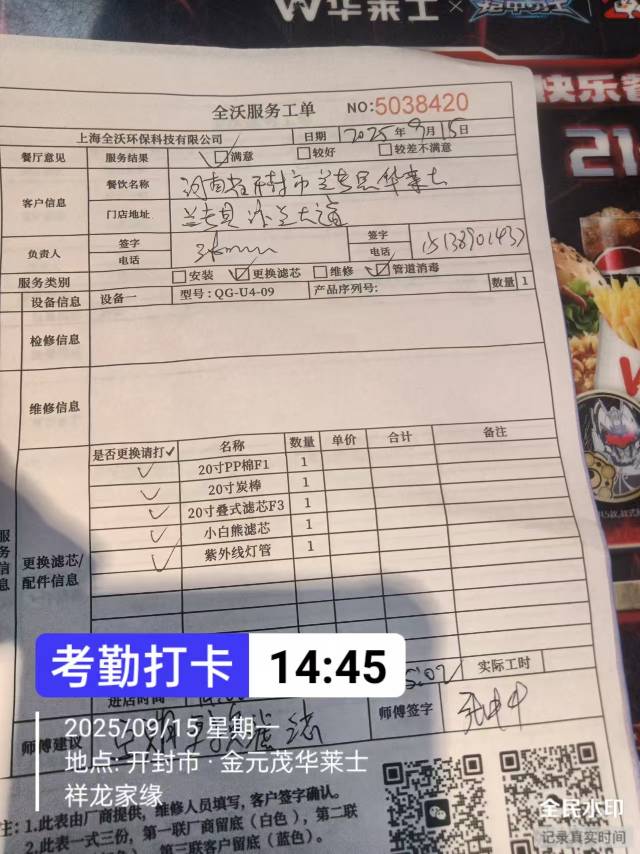 华莱士 ×
快乐
21
全沃服务工单 NO:5038420
上海全沃环保科技有限公司 日期 2025年9月15日
餐厅意见 服务结果 满意 较好 较差不满意
客户信息 餐饮名称 河南省开封市兰考县华莱士
门店地址 兰考县
负责人 签字 签字
电话 电话
服务类别 安装 更换滤芯 维修 管道消毒
设备信息 设备一 型号:QG-U4-09 产品序列号: 数量 1
检修信息
维修信息
是否更换请打✓ 名称 数量 单价 合计 备注
20寸PP棉F1 1
20寸炭棒 1
20寸叠式滤芯F3 1
小白熊滤芯 1
紫外线灯管 1
服务信息
更换滤芯/
配件信息
考勤打卡 14:45
进店时间 实际工时
师傅建议 师傅签字
2025/09/15 星期一
地点: 开封市 · 金元茂华莱士
祥龙家缘
注:1.此表由厂商提供，维修人员填写，客户签字确认。
2.此表一式三份，第一联厂商留底（白色），第二联
第三联客户留底（蓝色）。
全民水印
记录真实时间